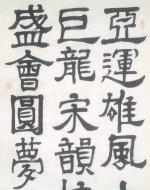 亞運雄風
巨龍宋韻
盛會圓夢